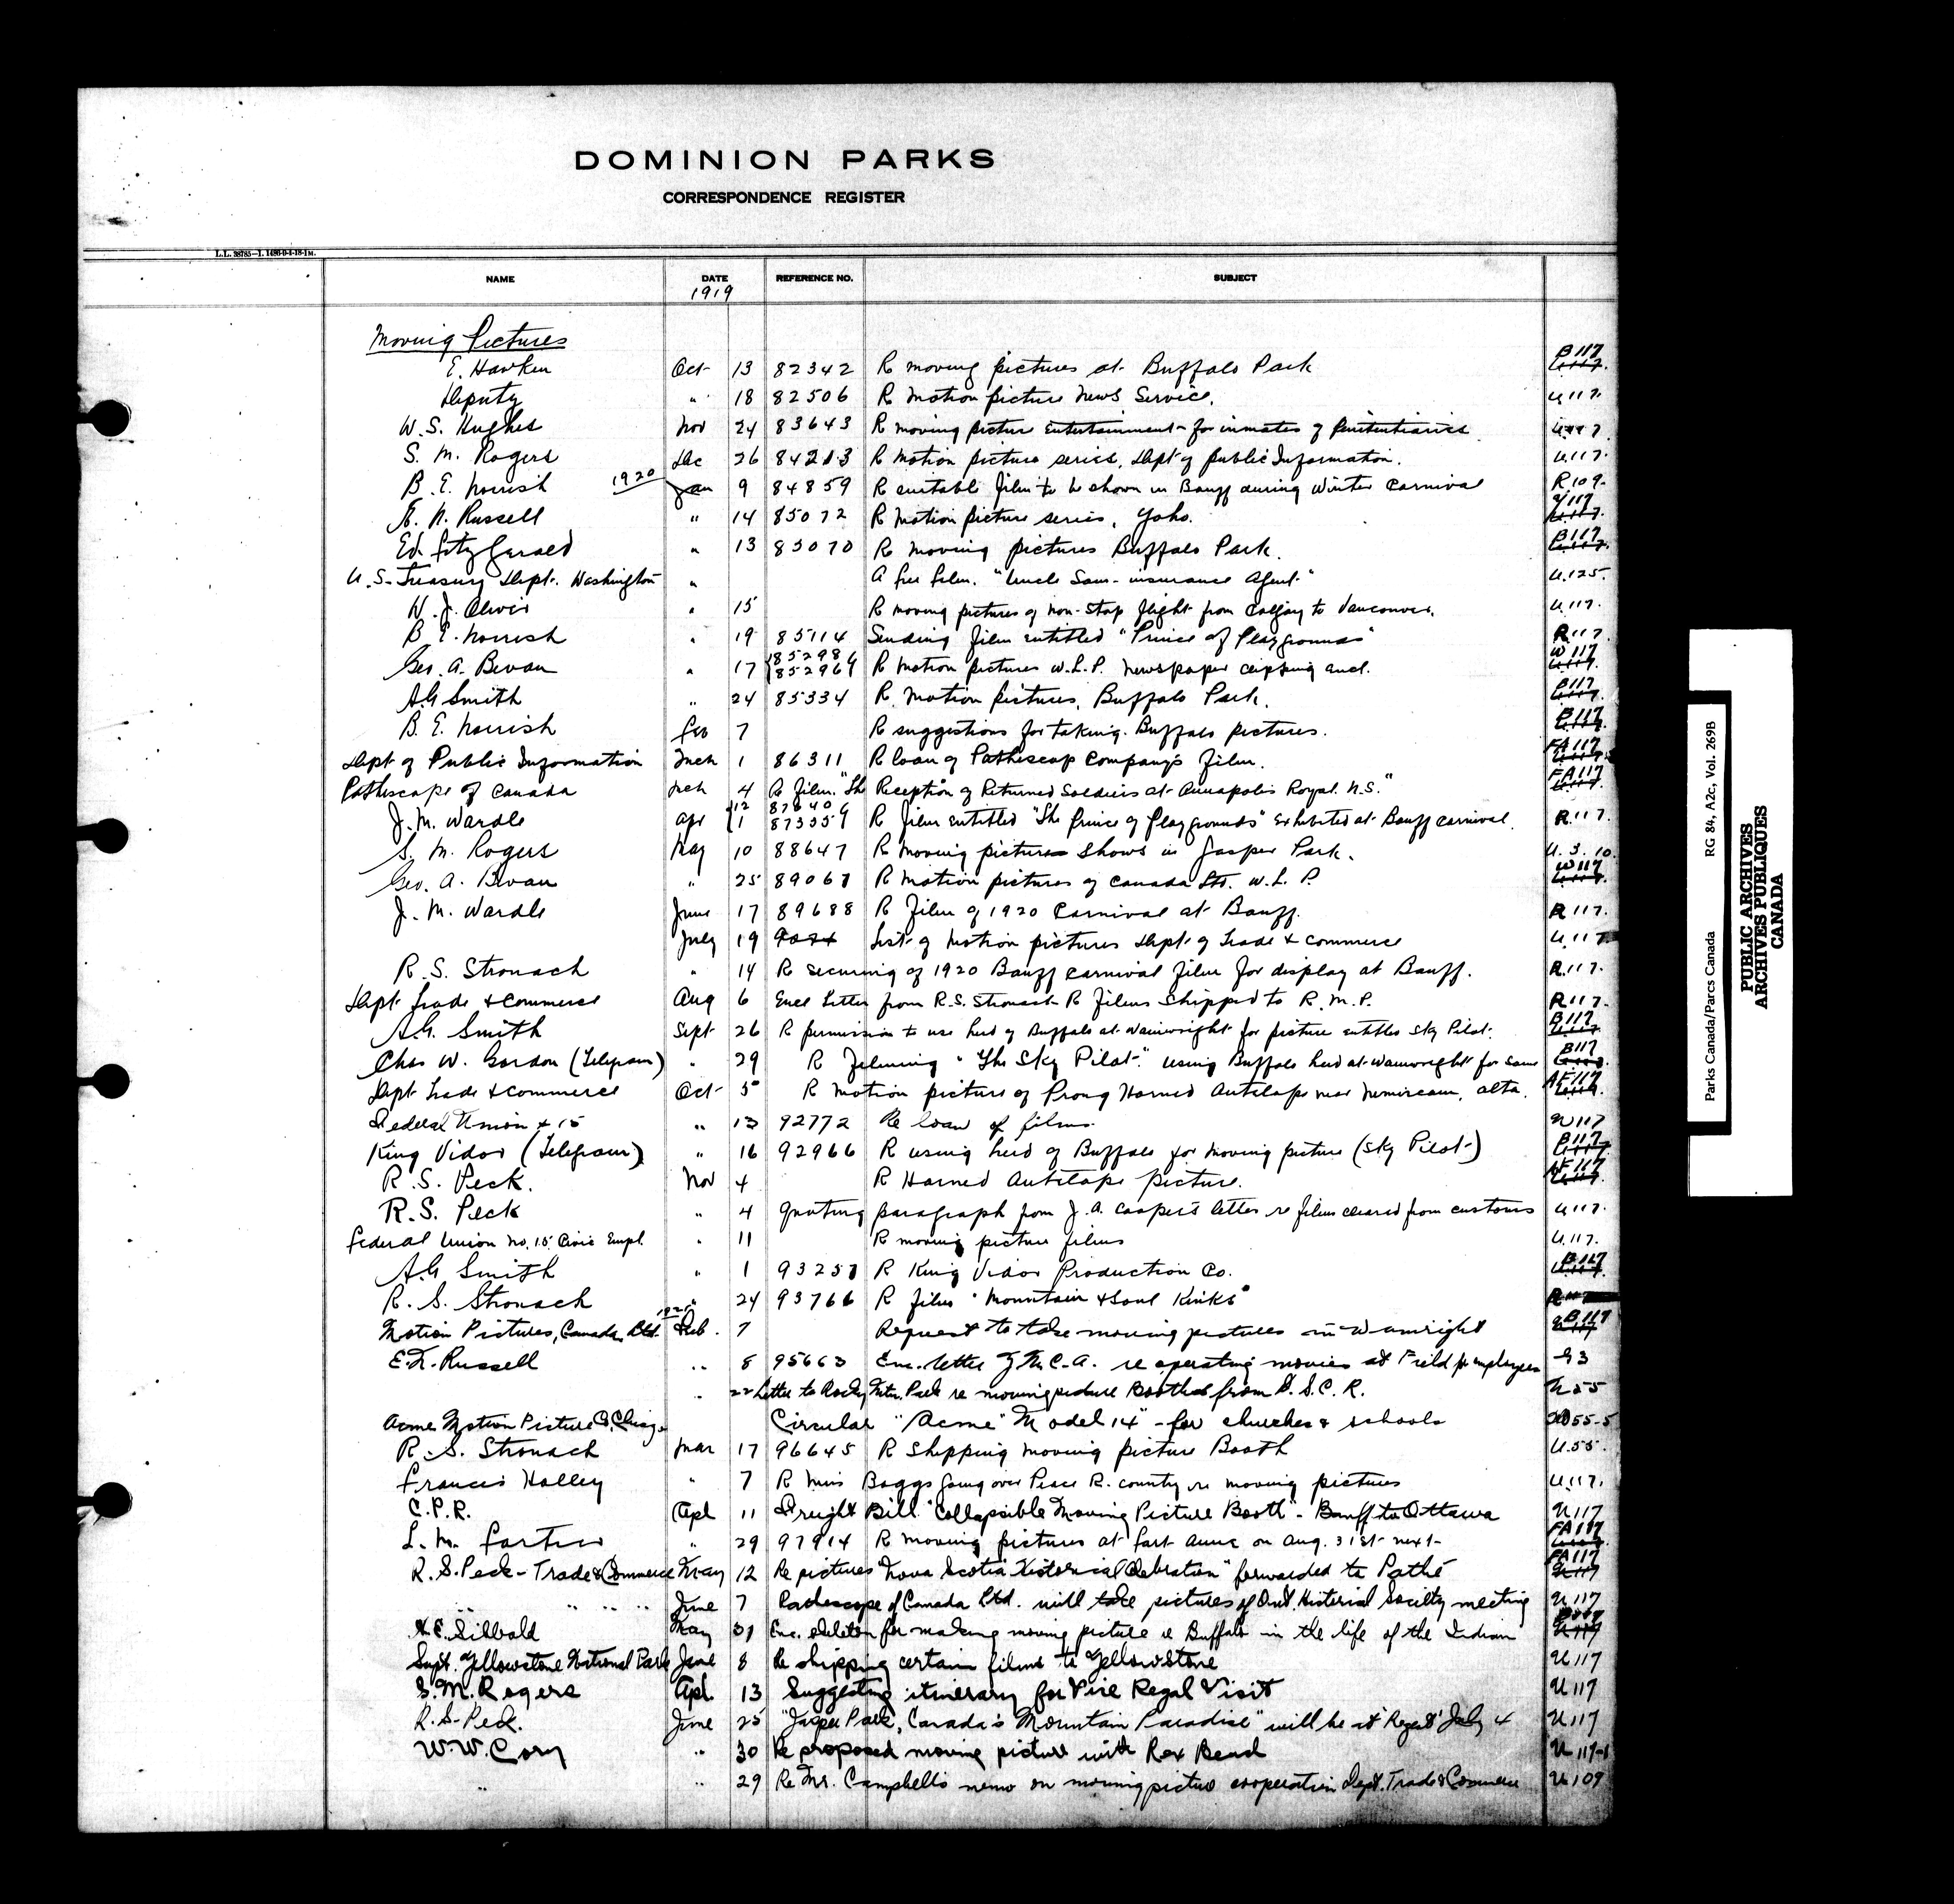 DOMINION PARKS
CORRESPONDENCE REGISTER
L.L. 38785—I. 1486-9-4-18-1M.
NAME DATE REFERENCE NO. SUBJECT
1919
Moving Pictures
E. Hawken Oct 13 82342 R moving pictures at Buffalo Park B117 U117.
Deputy " 18 82506 R Motion picture News Service. U117.
W.S. Hughes Nov 24 83643 R moving picture entertainment for inmates of penitentiaries. U117.
S. M. Rogers Dec 26 84213 R Motion picture series, Dept of Public Information. U117.
B. E. Norrish 1920 Jan 9 84859 R suitable film to be shown in Banff during Winter Carnival R109.
E. N. Russell " 14 85072 R Motion picture series, Yoho. Y117 U117.
Ed. Fitz Gerald " 13 85070 R Moving pictures Buffalo Park. B117 U117.
U.S. Treasury Dept. Washington " A free film. "Uncle Sam - insurance Agent" U.125.
W. J. Oliver " 15 R moving pictures of non-stop flight from Calgary to Vancouver. U117.
B. E. Norrish " 19 85114 Sending film entitled "Prince of Playgrounds" R117.
Geo. A. Bevan " 17 85298 85296 R Motion pictures W.L.P. Newspaper clipping encl. W117 U117.
A.G Smith " 24 85334 R. Motion pictures, Buffalo Park. B117 U117.
B. E. Norrish Feb 7 R suggestions for taking Buffalo pictures. B117 U117.
Dept of Public Information Mch 1 86311 R loan of Pathescop Company's film. FA117 U117.
Pathescope of Canada Mch 4 R Film. "The Reception of Returned Soldiers at Annapolis Royal. N.S." FA117 U117.
J. M. Wardle Apr 12 1 87640 87335 R film entitled "The Prince of Playgrounds" exhibited at Banff carnival. R.117.
S. M. Rogers May 10 88647 R Moving picture shows in Jasper Park. U.3.10.
Geo. A. Bevan " 25 89067 R Motion pictures of Canada Ltd. W.L.P. W117 U117.
J. M. Wardle June 17 89688 R Film of 1920 Carnival at Banff. R117.
July 19 List of Motion pictures Dept of Trade & Commerce U.117
R.S. Stronach " 14 R securing of 1920 Banff Carnival film for display at Banff. R.117.
Dept Trade & Commerce Aug 6 Encl letter from R.S. Stronach R Films shipped to R.M.P. R117.
A.G. Smith Sept 26 R permission to use herd of Buffalo at Wainwright for picture entitled Sky Pilot. B117 U117.
Chas W. Gordon (Telegram) " 29 R Filming "The Sky Pilot" using Buffalo herd at Wainwright for same B117 U117.
Dept Trade & Commerce Oct 5 R Motion picture of Prong Horned Antelope near Nemiscam, Alta. AF117 U117.
Federal Union # 15 " 13 92772 Re loan of films. U117
King Vidor (Telegram) " 16 92966 R using herd of Buffalo for moving picture (Sky Pilot) B117 U117
R. S. Peck. Nov 4 R Horned Antelope picture. AF117 U117.
R.S. Peck " 4 Quoting paragraph from J.A. Cooper's letter re films cleared from customs U117.
Federal Union No. 15 Civic Empl. " 11 R moving picture films U.117.
A.G Smith " 1 93251 R King Vidor Production Co. B117 U117.
R. S. Stronach " 24 93766 R film "Mountain & Soul Kinks" R117
Motion Pictures, Canada, Ltd. 1921 Feb. 7 Request to take moving pictures in Wainright B117 U117
E.N. Russell " 8 95663 Enc. letter Y.M.C.A. re operating movies at Field for employees G3
" 22 Letter to Rocky Mtn. Park re moving picture Booths from D.S.C.R. U55
Acme Motion Picture Co. Chicago Circular "Acme" Model 14" - for churches & schools 55-5
R. S. Stronach Mar 17 96645 R Shipping moving picture Booth U.55.
Francis Holley " 7 R Miss Boggs going over Peace R. county re moving pictures U.117.
C.P.R. Apl 11 Freight Bill "Collapsible Moving Picture Booth" - Banff to Ottawa U117
L. M. Fortier " 29 97914 R Moving pictures at Fort Anne on Aug. 31st next- FA117
R.S. Peck - Trade & Commerce May 12 Re pictures "Nova Scotia Historical Celebration" forwarded to Pathé FA117 U117
" " " " June 7 Pathescope of Canada Ltd. will take pictures of Ont. Historical Society meeting U117
H.E. Sibbald May 31 Enc. skeleton for making moving picture re Buffalo in the life of the Indian B117 U117
Supt. Yellowstone National Park June 8 Re shipping certain films to Yellowstone U117
S. M. Rogers Apl. 13 Suggesting itinerary for Vice Regal Visit U117
R. S. Peck. June 25 "Jasper Park, Canada's Mountain Paradise" will be at Regent July 4 U117
W.W. Cory " 30 Re proposed moving picture with Rex Beach U117-1
" " 29 Re Mr. Campbell's memo on moving picture cooperation Dept. Trade & Commerce U109
Parks Canada/Parcs Canada RG 84, A2c, Vol. 269B
PUBLIC ARCHIVES
ARCHIVES PUBLIQUES
CANADA